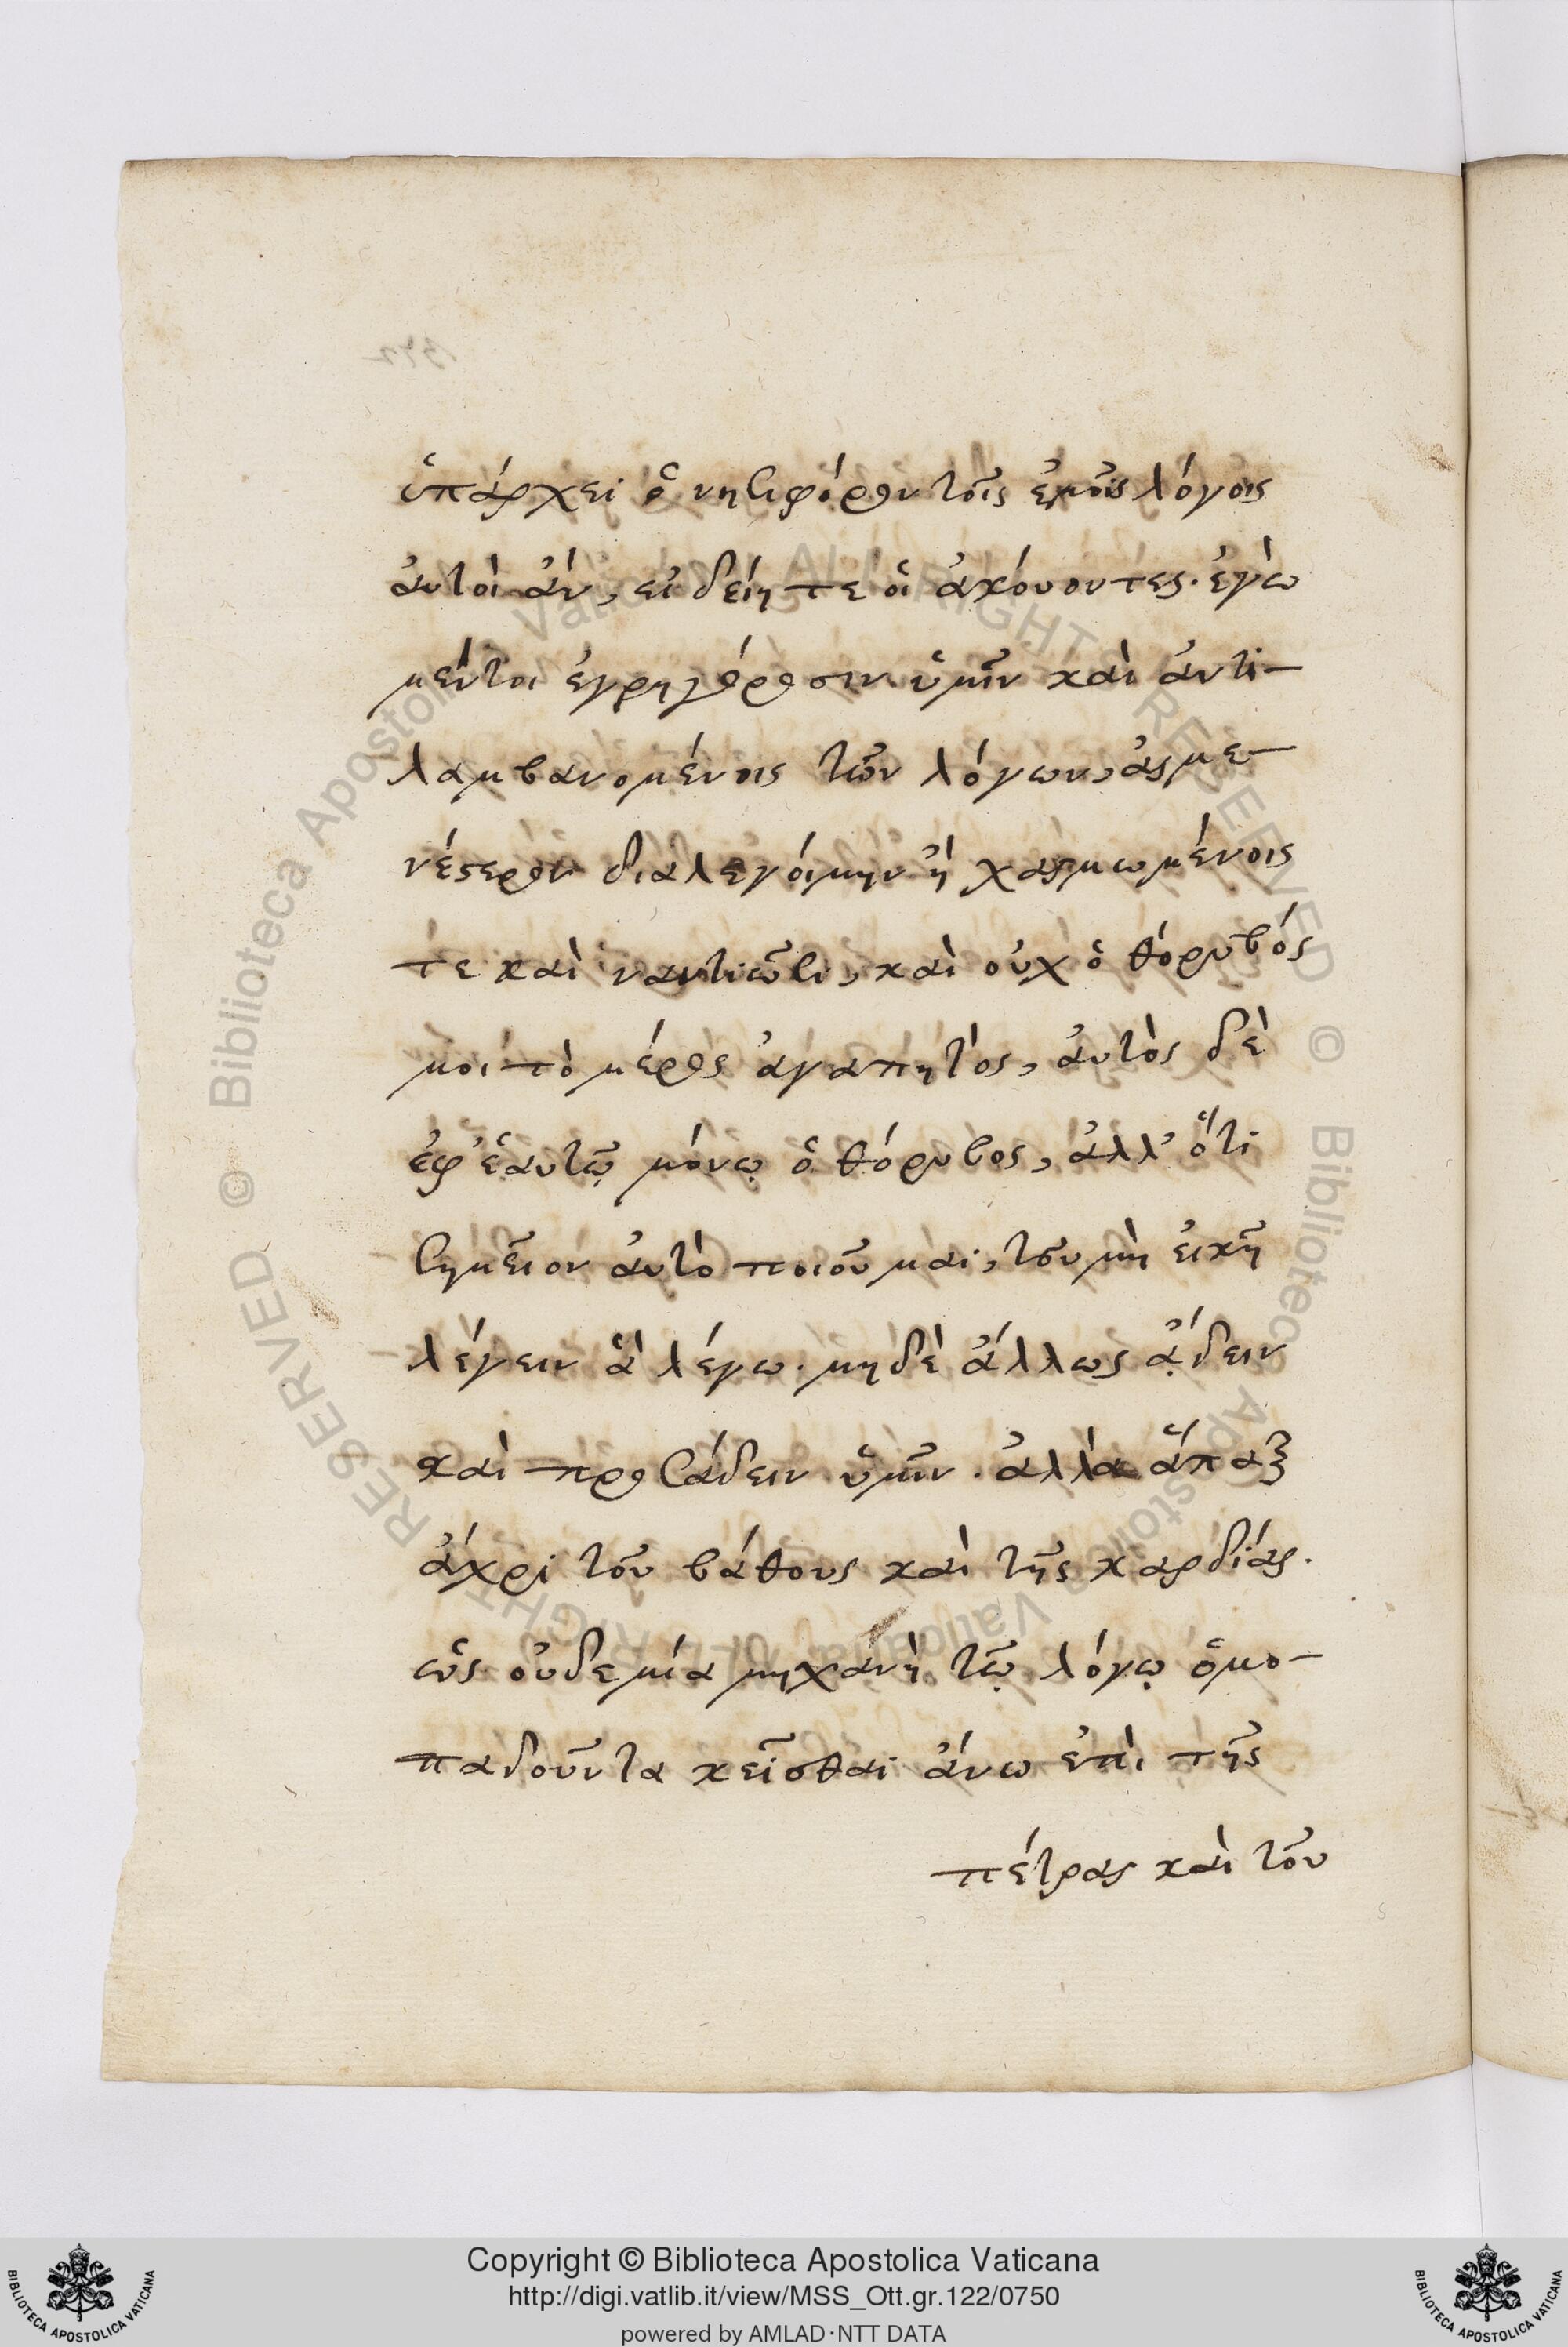 ὑπάρχει ὁ νησιφόρον τοῖς ἐμοῖς λόγοις
ἀυτοὶ ἀν, εἰδείητε ὁι ἀκόυοντες. ἐγὼ
μέντοι ἐγρηγόροσιν ὑμῖν καὶ ἀντι-
λαμβανομένοις τῶν λόγων, ἀσμε-
νέστερον διαλεγόιμην ἢ χασμωμένοις
τε καὶ ναυτιῶσι, καὶ οὐχ ὁ θόρυβός
μοι τὸ μέρος ἀγαπητὸς, ἀυτὸς δὲ
ἐφ' ἑαυτῷ μόνῳ ὁ θόρυβος, ἀλλ' ὅτι
σημεῖον ἀυτὸ ποιοῦμαι, τοῦ μὴ ἐικῆ
λέγειν ἃ λέγω. μηδὲ ἄλλως ᾄδειν
καὶ προσάδειν ὑμῖν. ἀλλὰ ἅπαξ
ἄχρι τοῦ βάθους καὶ τῆς καρδίας.
ὡς οὐδεμία μηχανὴ τῷ λόγῳ ὁμο-
παδοῦντα κεῖσθαι ἄνω ἐπὶ τῆς
πέτρας καὶ τοῦ
Copyright © Biblioteca Apostolica Vaticana
http://digi.vatlib.it/view/MSS_Ott.gr.122/0750
powered by AMLAD·NTT DATA
BIBLIOTECA APOSTOLICA VATICANA
BIBLIOTECA APOSTOLICA VATICANA